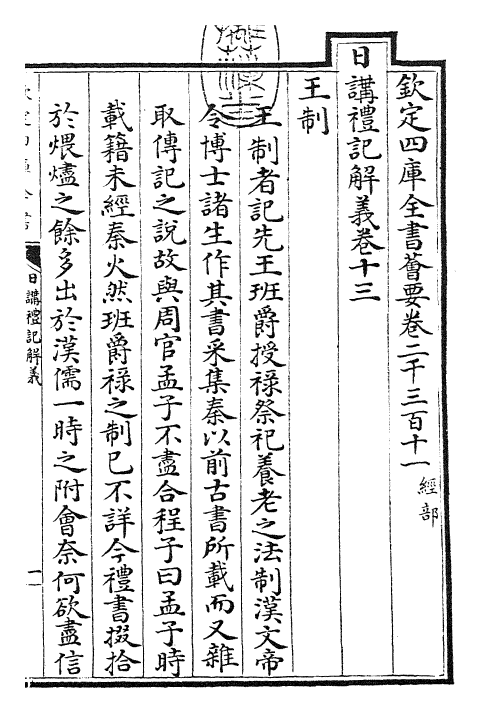 欽定四庫全書薈要卷二千三百十一 經部
日講禮記解義卷十三
王制
王制者記先王班爵授祿祭祀養老之法制漢文帝
令博士諸生作其書采集秦以前古書所載而又雜
取傳記之說故與周官孟子不盡合程子曰孟子時
載籍未經秦火然班爵祿之制已不詳今禮書掇拾
於煨燼之餘多出於漢儒一時之附會奈何欲盡信
日講禮記解義
一